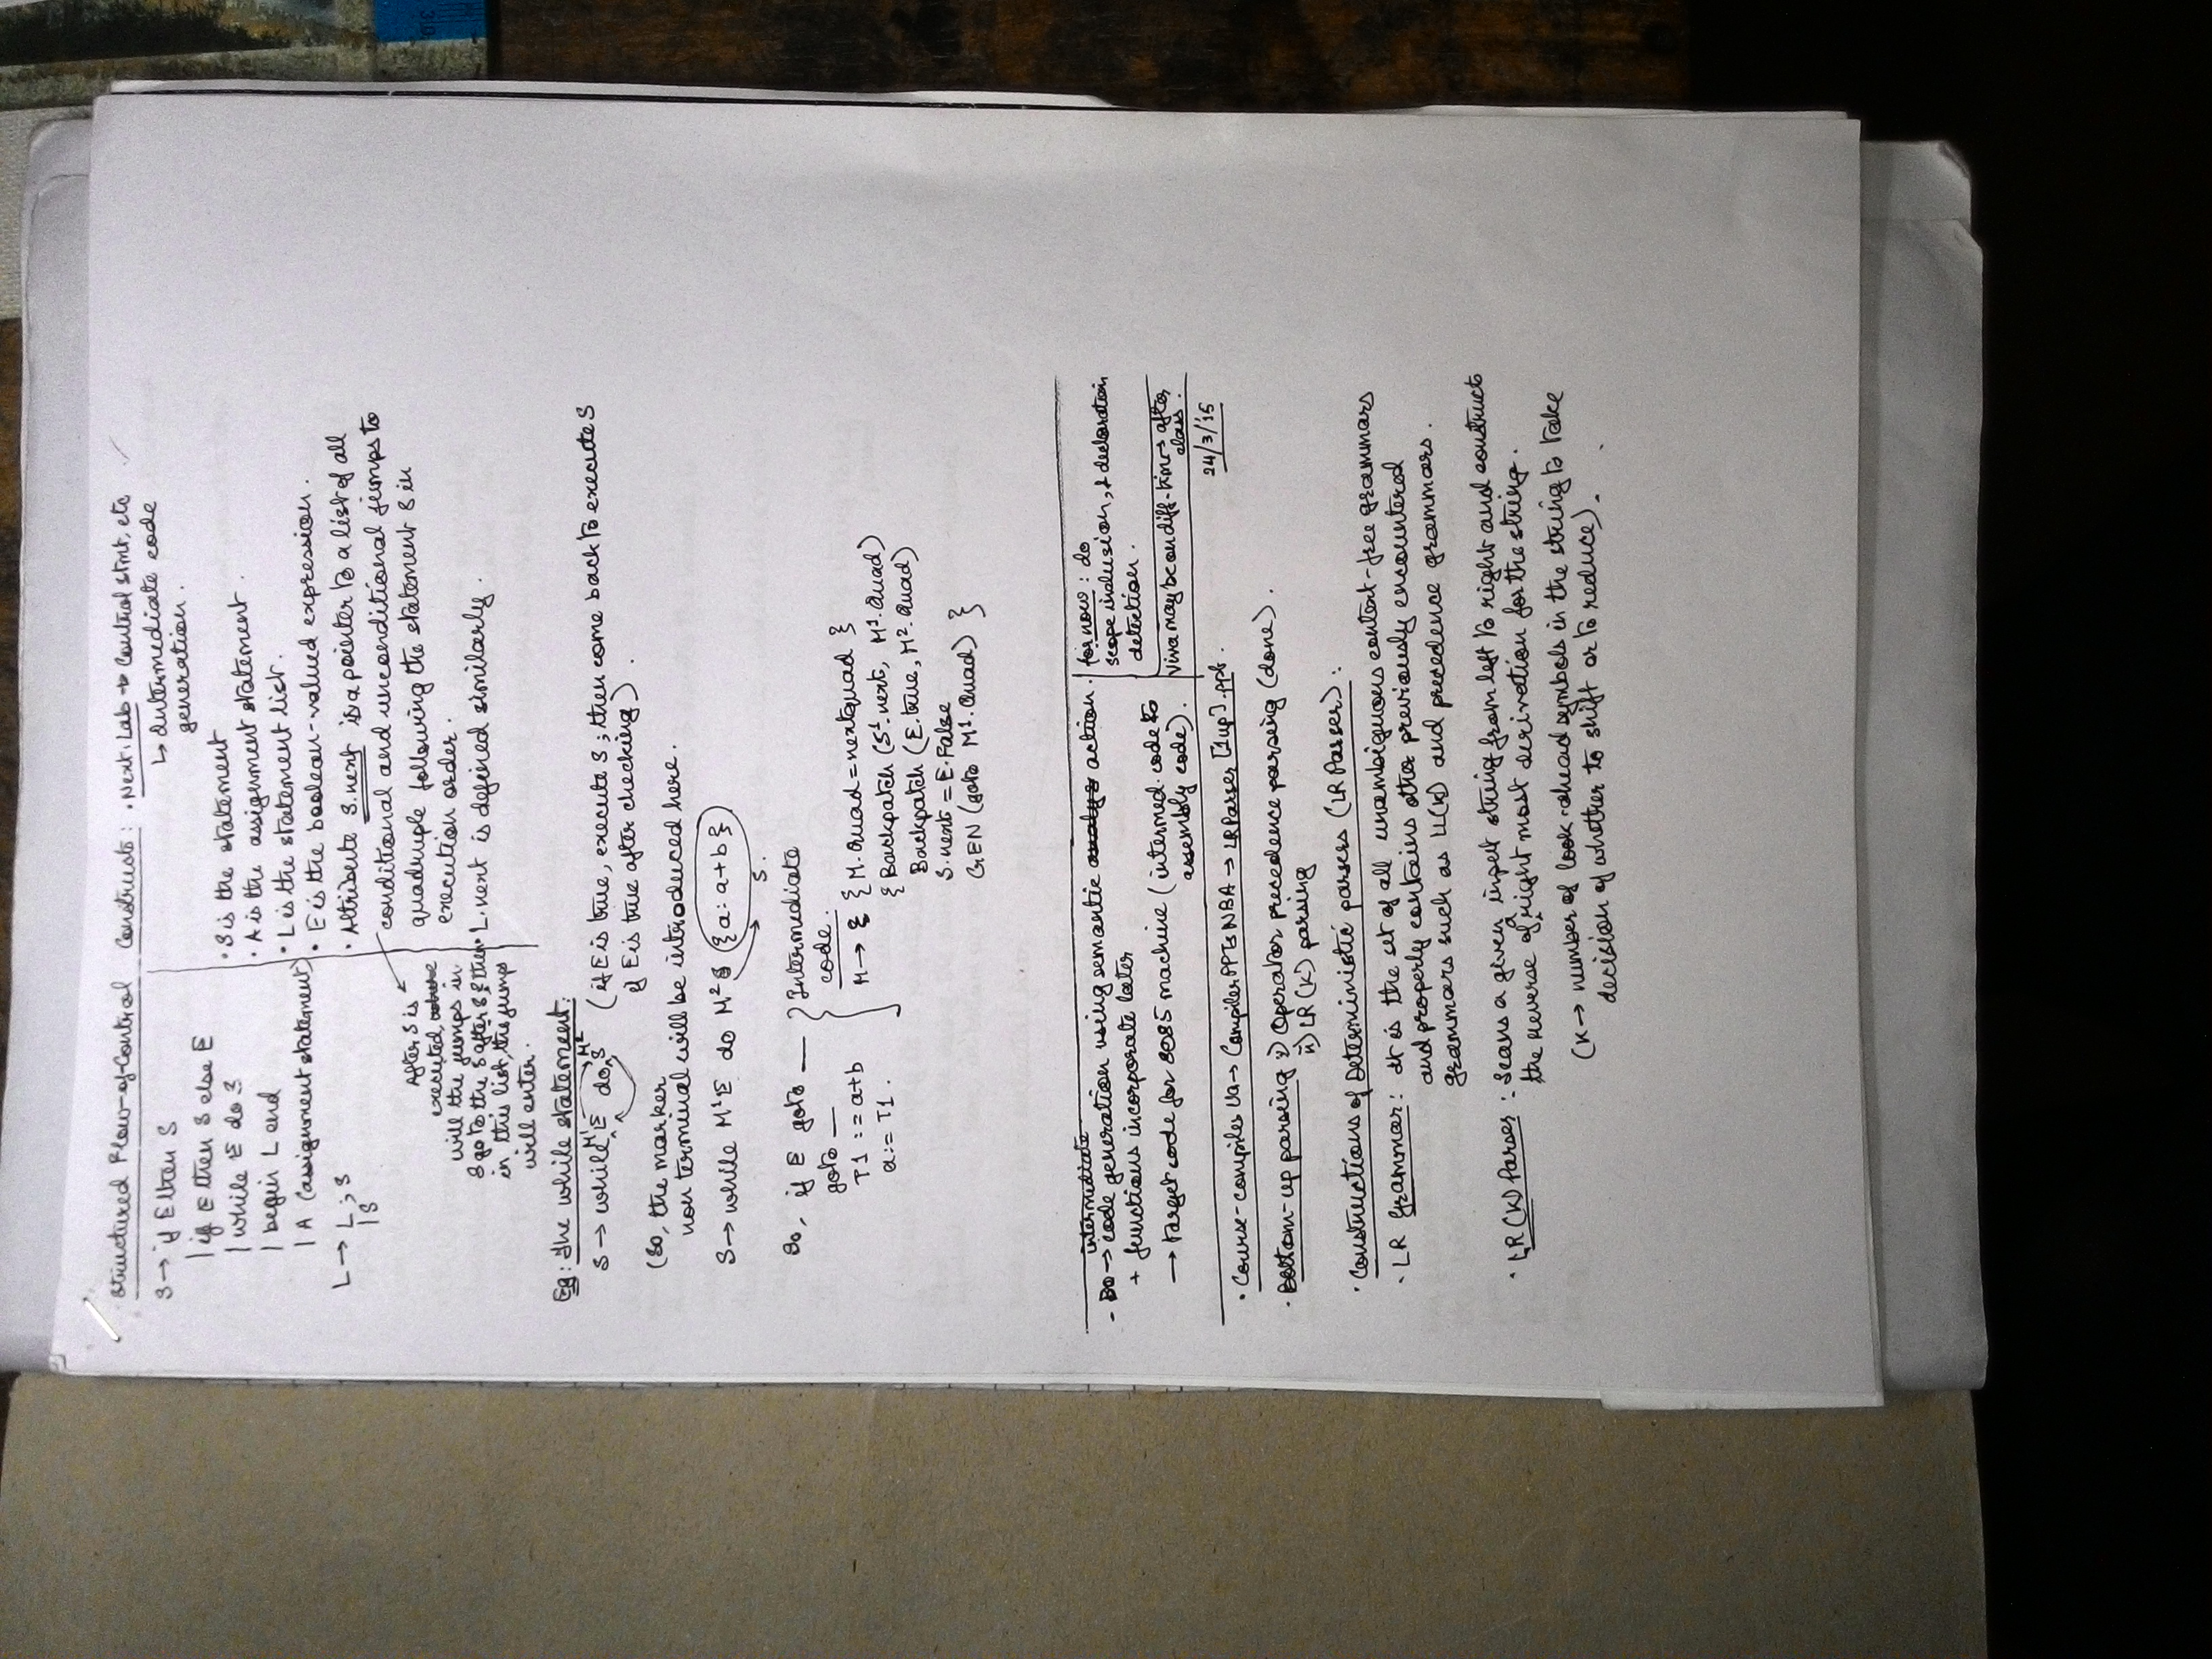 Structured Flow-of-Control Constructs: . Next Lab → Control stmt, etc
↳ Intermediate code
generation.
S → if E then S
| if E then S else E
| while E do S
| begin L end
| A (assignment statement)
L → L ; S
| S
• S is the statement
• A is the assignment statement.
• L is the statement list.
• E is the boolean-valued expression.
• Attribute S.next is a pointer to a list of all
conditional and unconditional jumps to
quadruple following the statement S in
execution order.
• L.next is defined similarly.
After S is
executed, where
will the jumps in
S go to the S after S & then
in this list, the jumps
will enter.
Eg: The while statement:
S → while M¹ E do M² S (if E is true, execute S; then come back to execute S
if E is true after checking).
(So, the marker
non terminal will be introduced here.
S → while M¹E do M² S {a: a+b}
S.
So, if E goto __
goto __
T1 := a+b
a := T1.
Intermediate
code.
M → ξ { M.Quad = nextquad }
{ Backpatch (S¹.next, M¹.Quad)
Backpatch (E.true, M².Quad)
S.next = E.False
GEN (goto M¹.Quad) }
- Do → intermediate code generation using semantic action.
+ functions incorporate later
→ Target code for 8085 machine (intermed. code to
assembly code).
for now: do
scope inclusion, & declaration
detection.
Viva may be on diff. times after
class.
24/3/'15
• Course-compiler Ua → Compiler PPTs NBA → LRParser [1up].ppt.
• Bottom-up parsing i) Operator precedence parsing (done).
ii) LR (K) parsing
• Constructions of Deterministic parsers (LR Parser):
• LR Grammar: It is the set of all unambiguous context-free grammars
and properly contains other previously encountered
grammars such as LL(K) and precedence grammars.
• LR (K) Parser: Scans a given input string from left to right and constructs
the reverse of a right most derivation for the string.
(K → number of look-ahead symbols in the string to take
decision of whether to shift or to reduce).